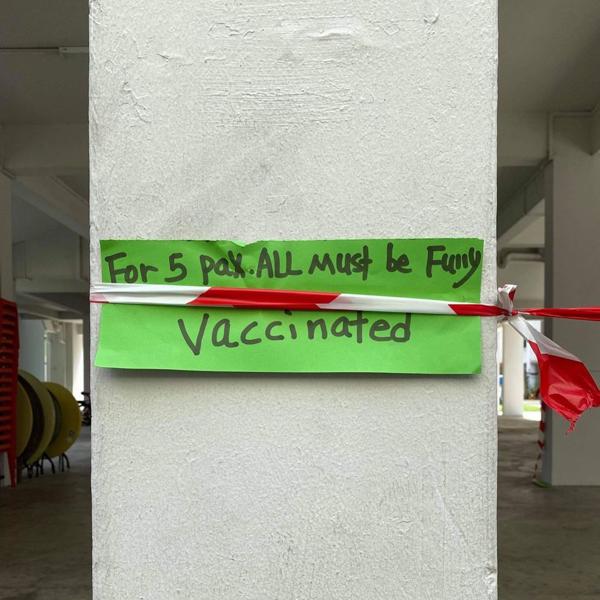 For 5 pax. ALL Must be Fully
Vaccinated